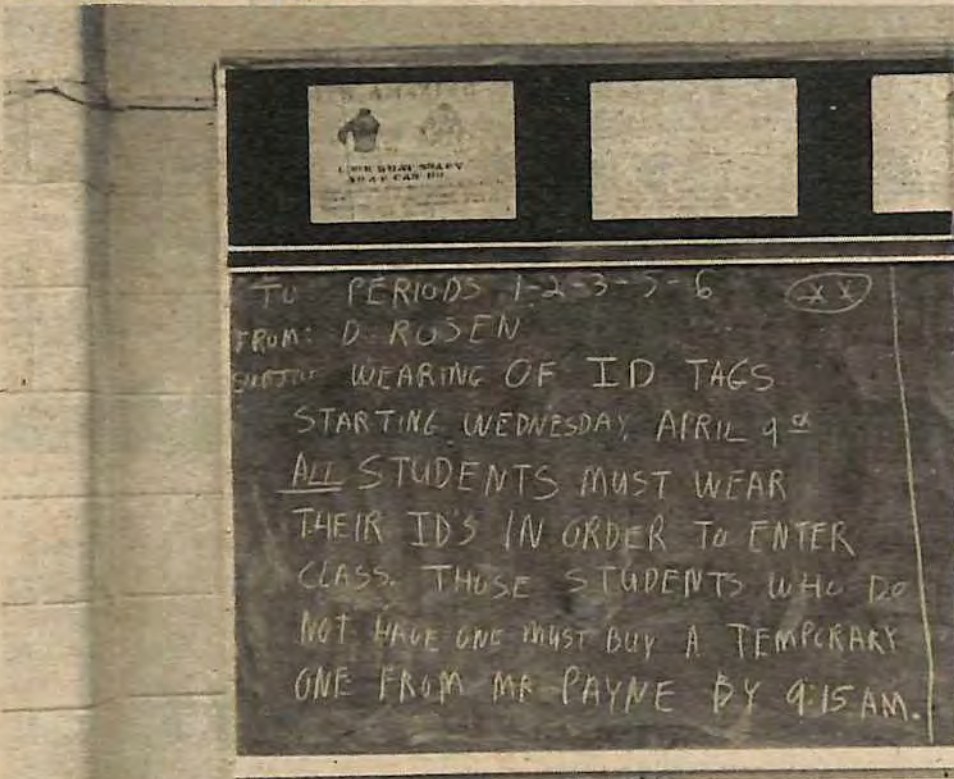 WHAT SOAPY
SOAP CAN DO
TO PERIODS 1-2-3-5-6 XX
FROM: D. ROSEN
WEARING OF ID TAGS
STARTING WEDNESDAY, APRIL 9
ALL STUDENTS MUST WEAR
THEIR ID'S IN ORDER TO ENTER
CLASS. THOSE STUDENTS WHO DO
NOT HAVE ONE MUST BUY A TEMPORARY
ONE FROM MR PAYNE BY 9:15 AM.